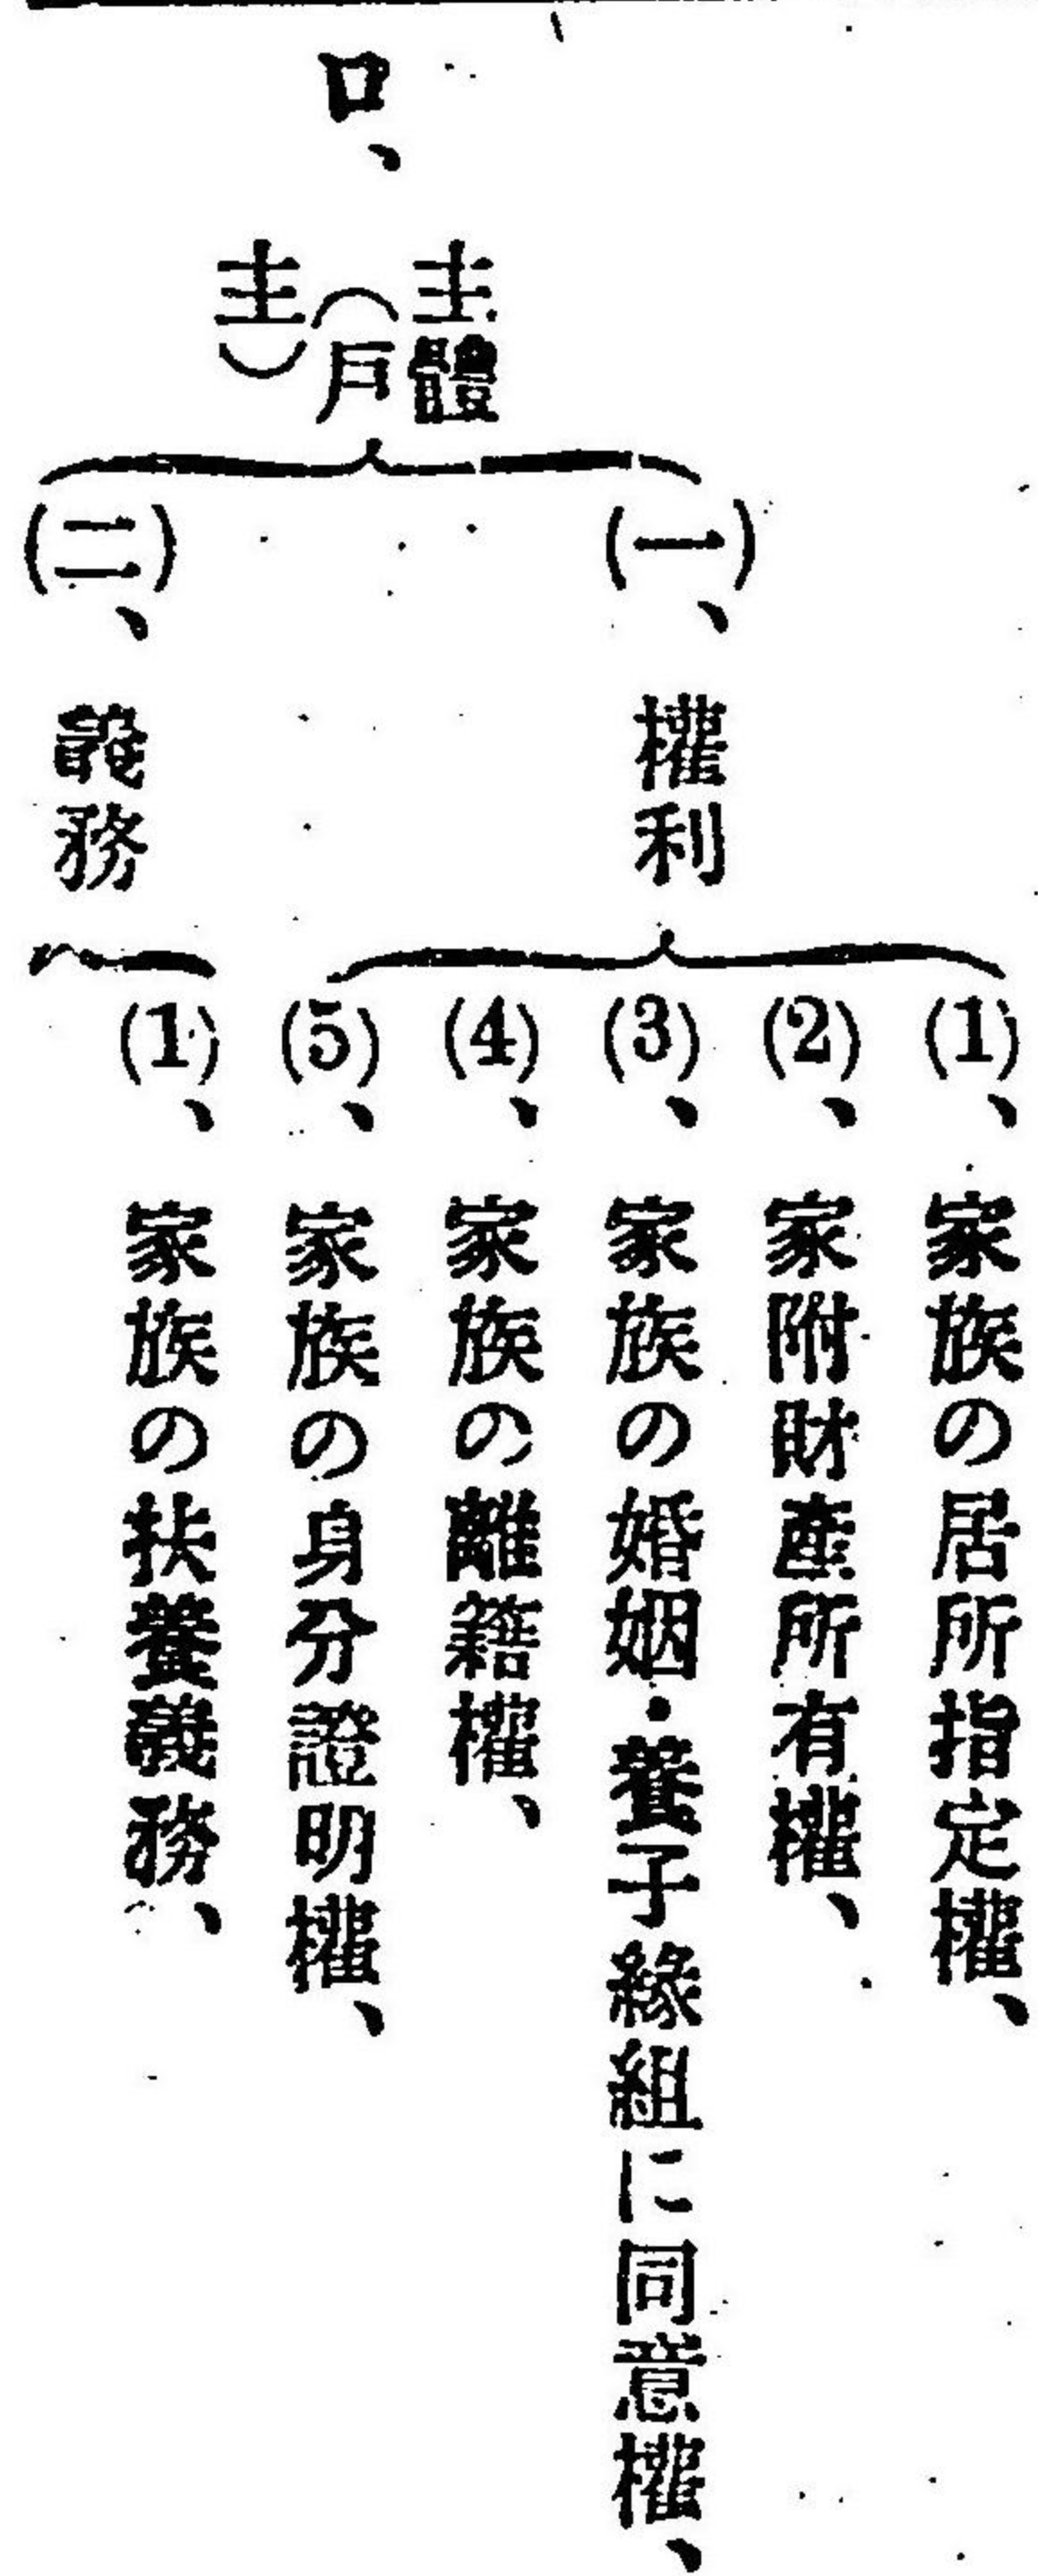 ロ、
主體
(戶
主)
(一)、權利
(1)、家族の居所指定權、
(2)、家附財產所有權、
(3)、家族の婚姻・養子緣組に同意權、
(4)、家族の離籍權、
(5)、家族の身分證明權、
(二)、義務
(1)、家族の扶養義務、